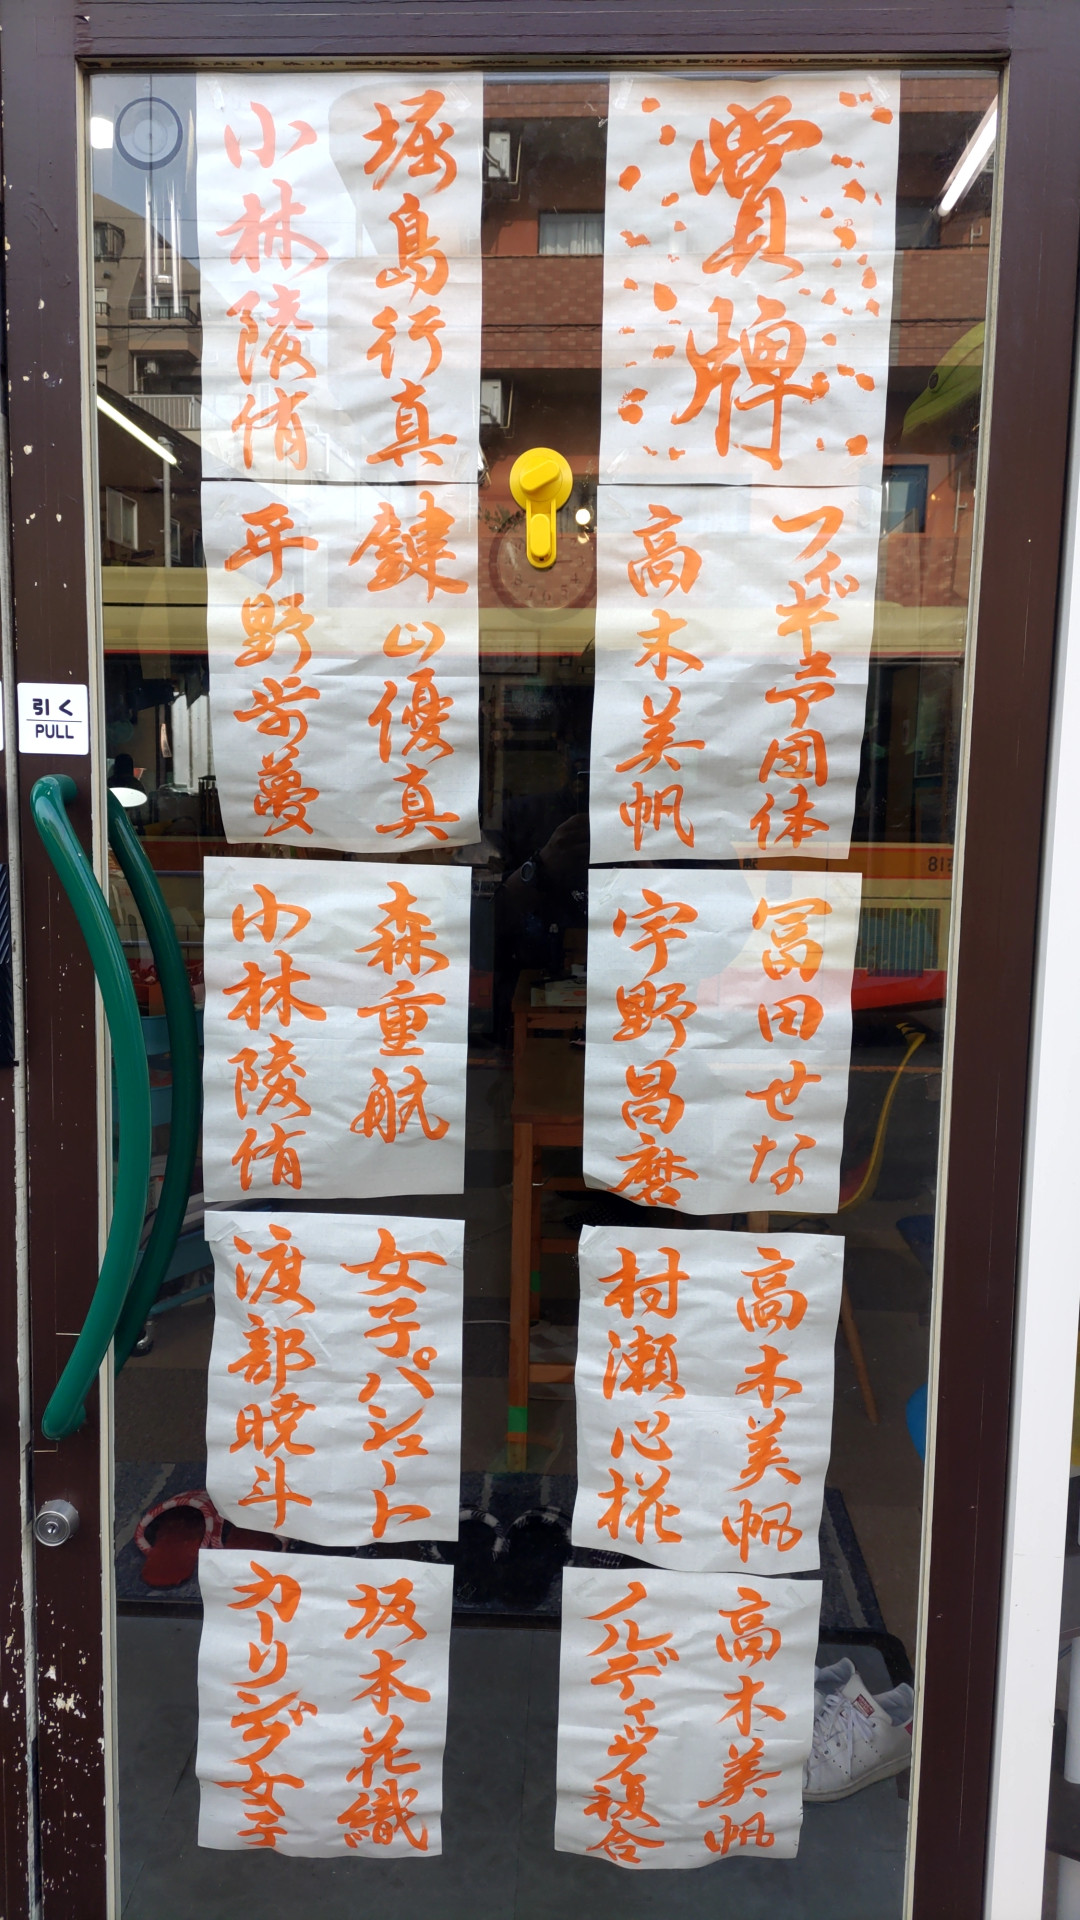 賞牌
フィギュア団体
高木美帆
冨田せな
宇野昌磨
高木美帆
村瀬心椛
高木美帆
ノルディック複合
堀島行真
小林陵侑
鍵山優真
平野歩夢
森重航
小林陵侑
女子パシュート
渡部暁斗
坂本花織
カーリング女子
引く
PULL